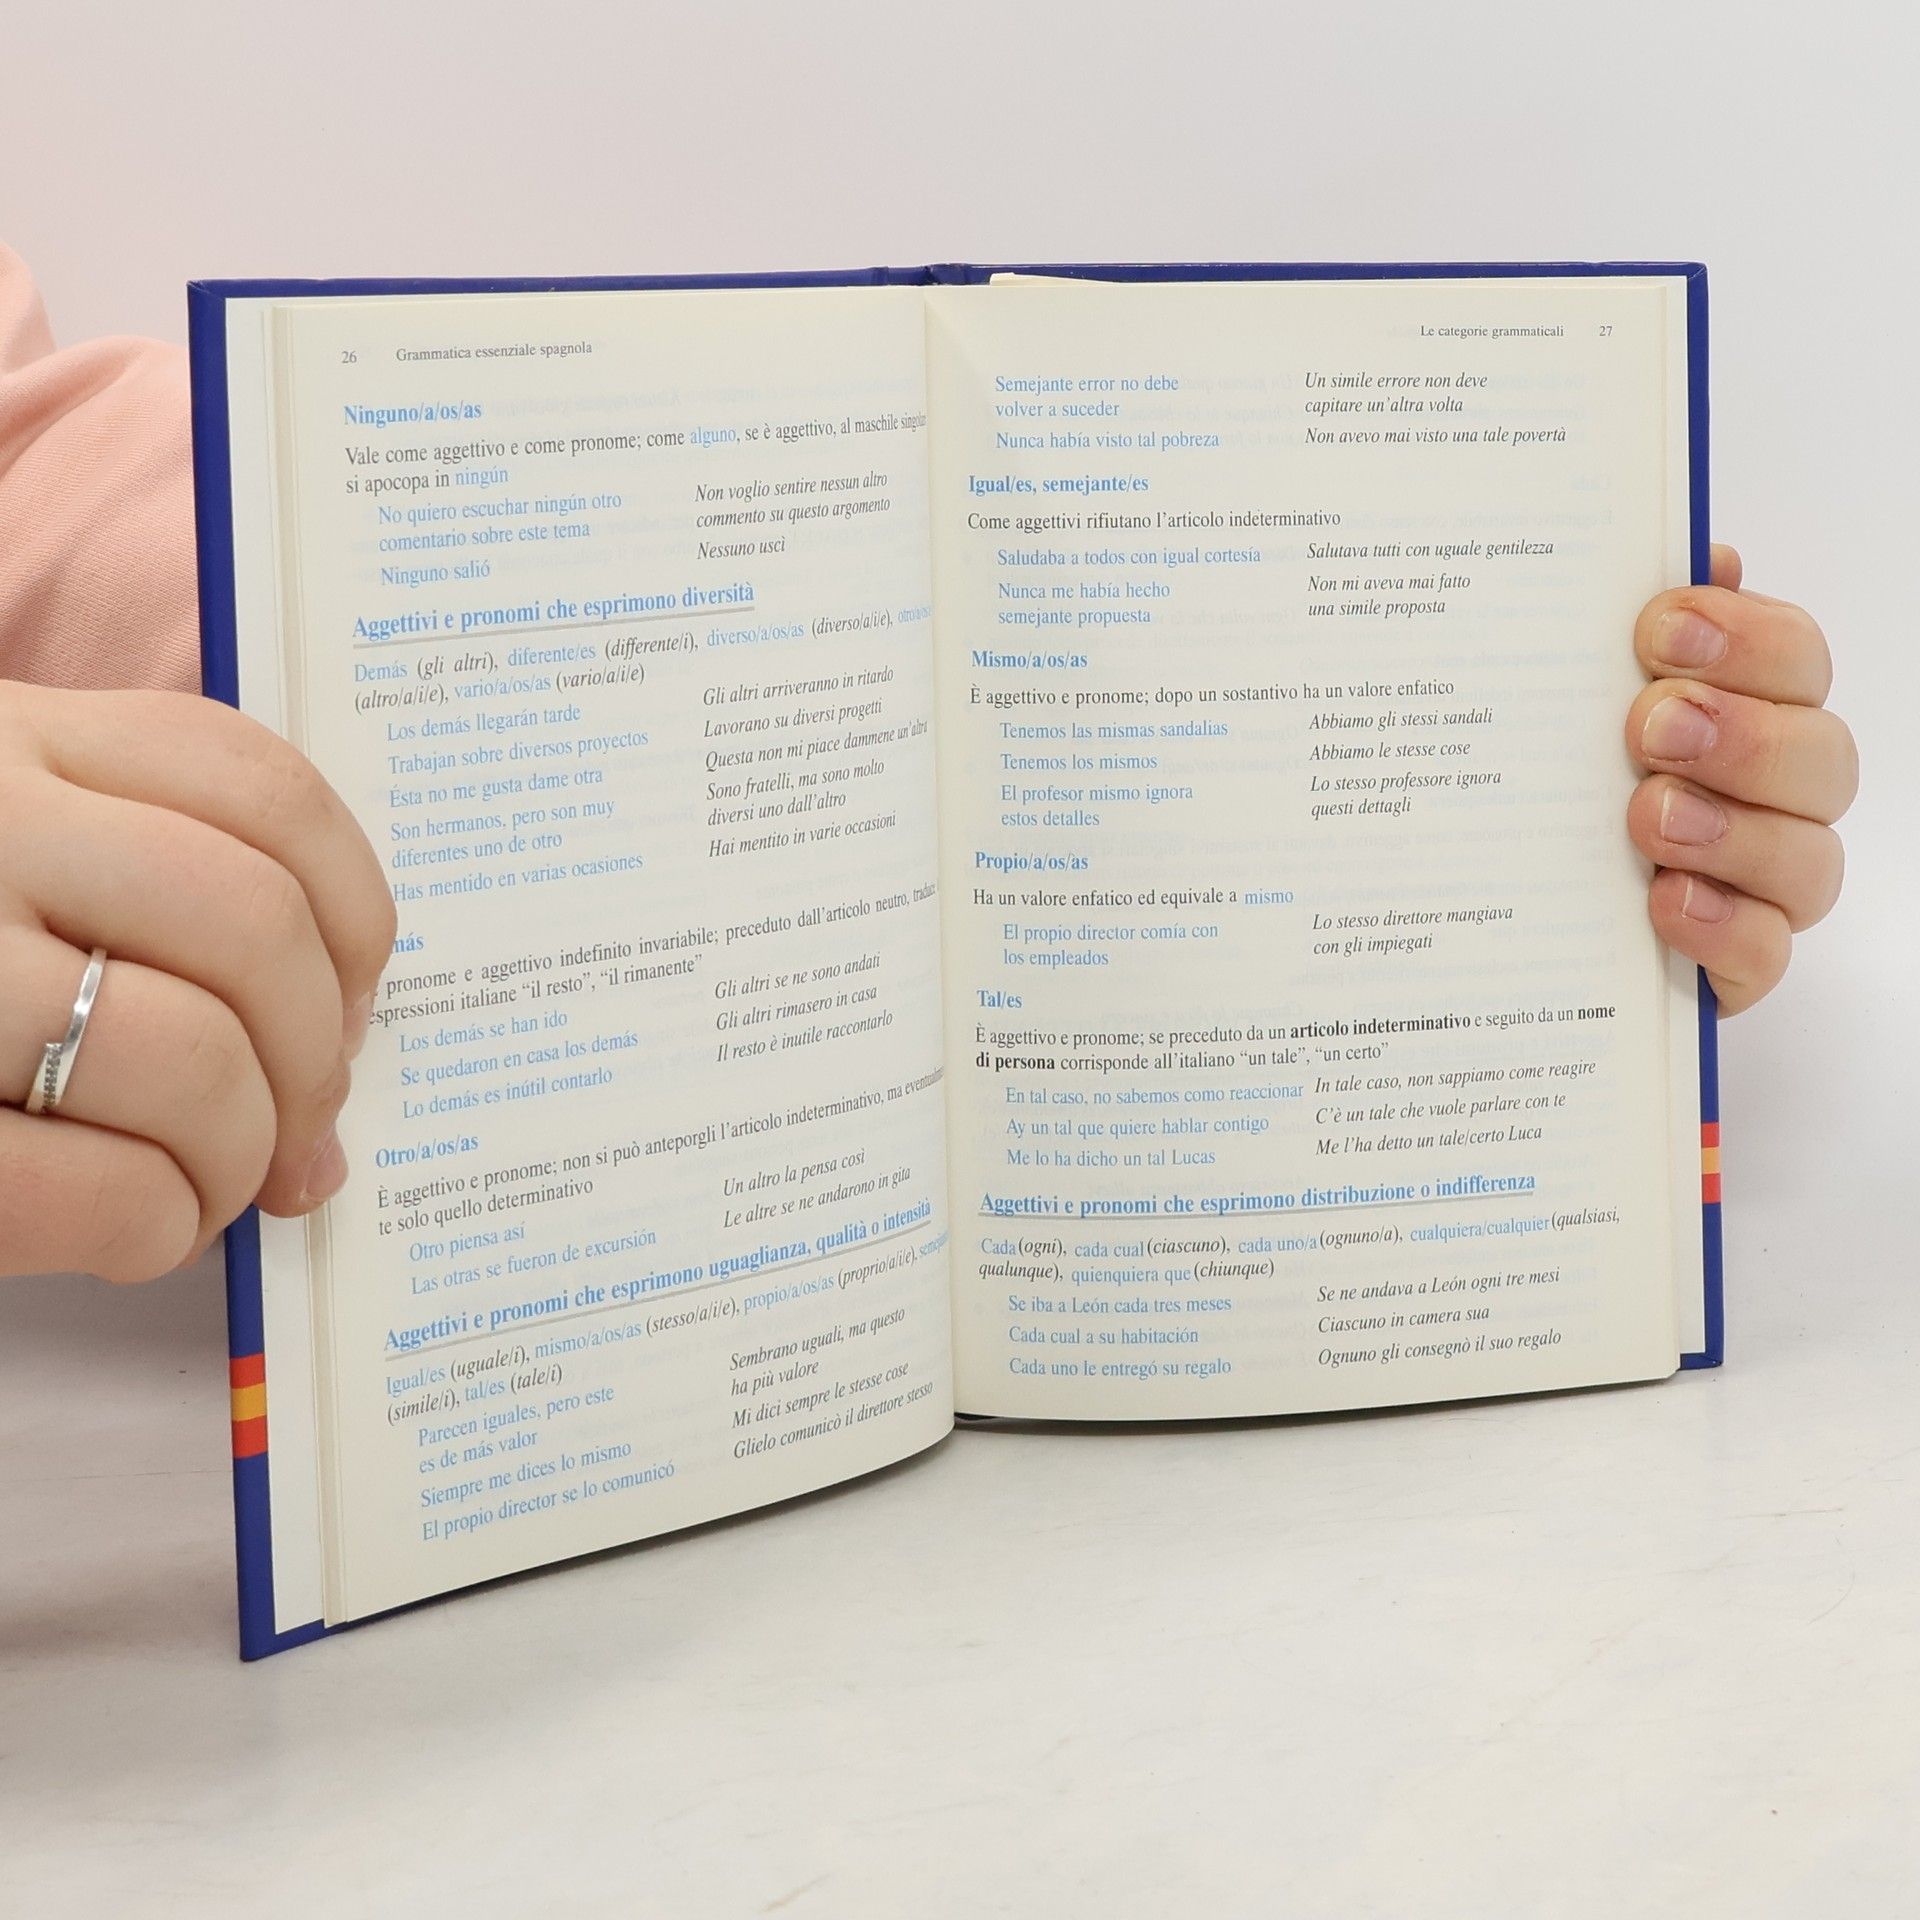 26 Grammatica essenziale spagnola
Ninguno/a/os/as
Vale come aggettivo e come pronome; come alguno, se è aggettivo, al maschile
si apocopa in ningún
No quiero escuchar ningún otro Non voglio sentire nessun altro
comentario sobre este tema commento su questo argomento
Ninguno salió Nessuno uscì
Aggettivi e pronomi che esprimono diversità
Demás (gli altri), diferente/es (differente/i), diverso/a/os/as (diverso/a/i/e),
(altro/a/i/e), vario/a/os/as (vario/a/i/e)
Los demás llegarán tarde Gli altri arriveranno in ritardo
Trabajan sobre diversos proyectos Lavorano su diversi progetti
Ésta no me gusta dame otra Questa non mi piace dammene un'altra
Son hermanos, pero son muy Sono fratelli, ma sono molto
diferentes uno de otro diversi uno dall'altro
Has mentido en varias ocasiones Hai mentito in varie occasioni
pronome e aggettivo indefinito invariabile; preceduto dall'articolo neutro,
espressioni italiane “il resto”, “il rimanente”
Los demás se han ido Gli altri se ne sono andati
Se quedaron en casa los demás Gli altri rimasero in casa
Lo demás es inútil contarlo Il resto è inutile raccontarlo
Otro/a/os/as
È aggettivo e pronome; non si può anteporgli l'articolo indeterminativo, ma
te solo quello determinativo
Otro piensa así Un altro la pensa così
Las otras se fueron de excursión Le altre se ne andarono in gita
Aggettivi e pronomi che esprimono uguaglianza, qualità o intensità
Igual/es (uguale/i), mismo/a/os/as (stesso/a/i/e), propio/a/os/as (proprio/a/i/e),
(simile/i), tal/es (tale/i)
Parecen iguales, pero este Sembrano uguali, ma questo
es de más valor ha più valore
Siempre me dices lo mismo Mi dici sempre le stesse cose
El propio director se lo comunicó Glielo comunicò il direttore stesso
Le categorie grammaticali 27
Semejante error no debe Un simile errore non deve
volver a suceder capitare un'altra volta
Nunca había visto tal pobreza Non avevo mai visto una tale povertà
Igual/es, semejante/es
Come aggettivi rifiutano l'articolo indeterminativo
Saludaba a todos con igual cortesía Salutava tutti con uguale gentilezza
Nunca me había hecho Non mi aveva mai fatto
semejante propuesta una simile proposta
Mismo/a/os/as
È aggettivo e pronome; dopo un sostantivo ha un valore enfatico
Tenemos las mismas sandalias Abbiamo gli stessi sandali
Tenemos los mismos Abbiamo le stesse cose
El profesor mismo ignora Lo stesso professore ignora
estos detalles questi dettagli
Propio/a/os/as
Ha un valore enfatico ed equivale a mismo
El propio director comía con Lo stesso direttore mangiava
los empleados con gli impiegati
Tal/es
È aggettivo e pronome; se preceduto da un articolo indeterminativo e seguito da un nome
di persona corrisponde all'italiano “un tale”, “un certo”
En tal caso, no sabemos como reaccionar In tale caso, non sappiamo come reagire
Ay un tal que quiere hablar contigo C'è un tale che vuole parlare con te
Me lo ha dicho un tal Lucas Me l'ha detto un tale/certo Luca
Aggettivi e pronomi che esprimono distribuzione o indifferenza
Cada (ogni), cada cual (ciascuno), cada uno/a (ognuno/a), cualquiera/cualquier (qualsiasi,
qualunque), quienquiera que (chiunque)
Se iba a León cada tres meses Se ne andava a León ogni tre mesi
Cada cual a su habitación Ciascuno in camera sua
Cada uno le entregó su regalo Ognuno gli consegnò il suo regalo